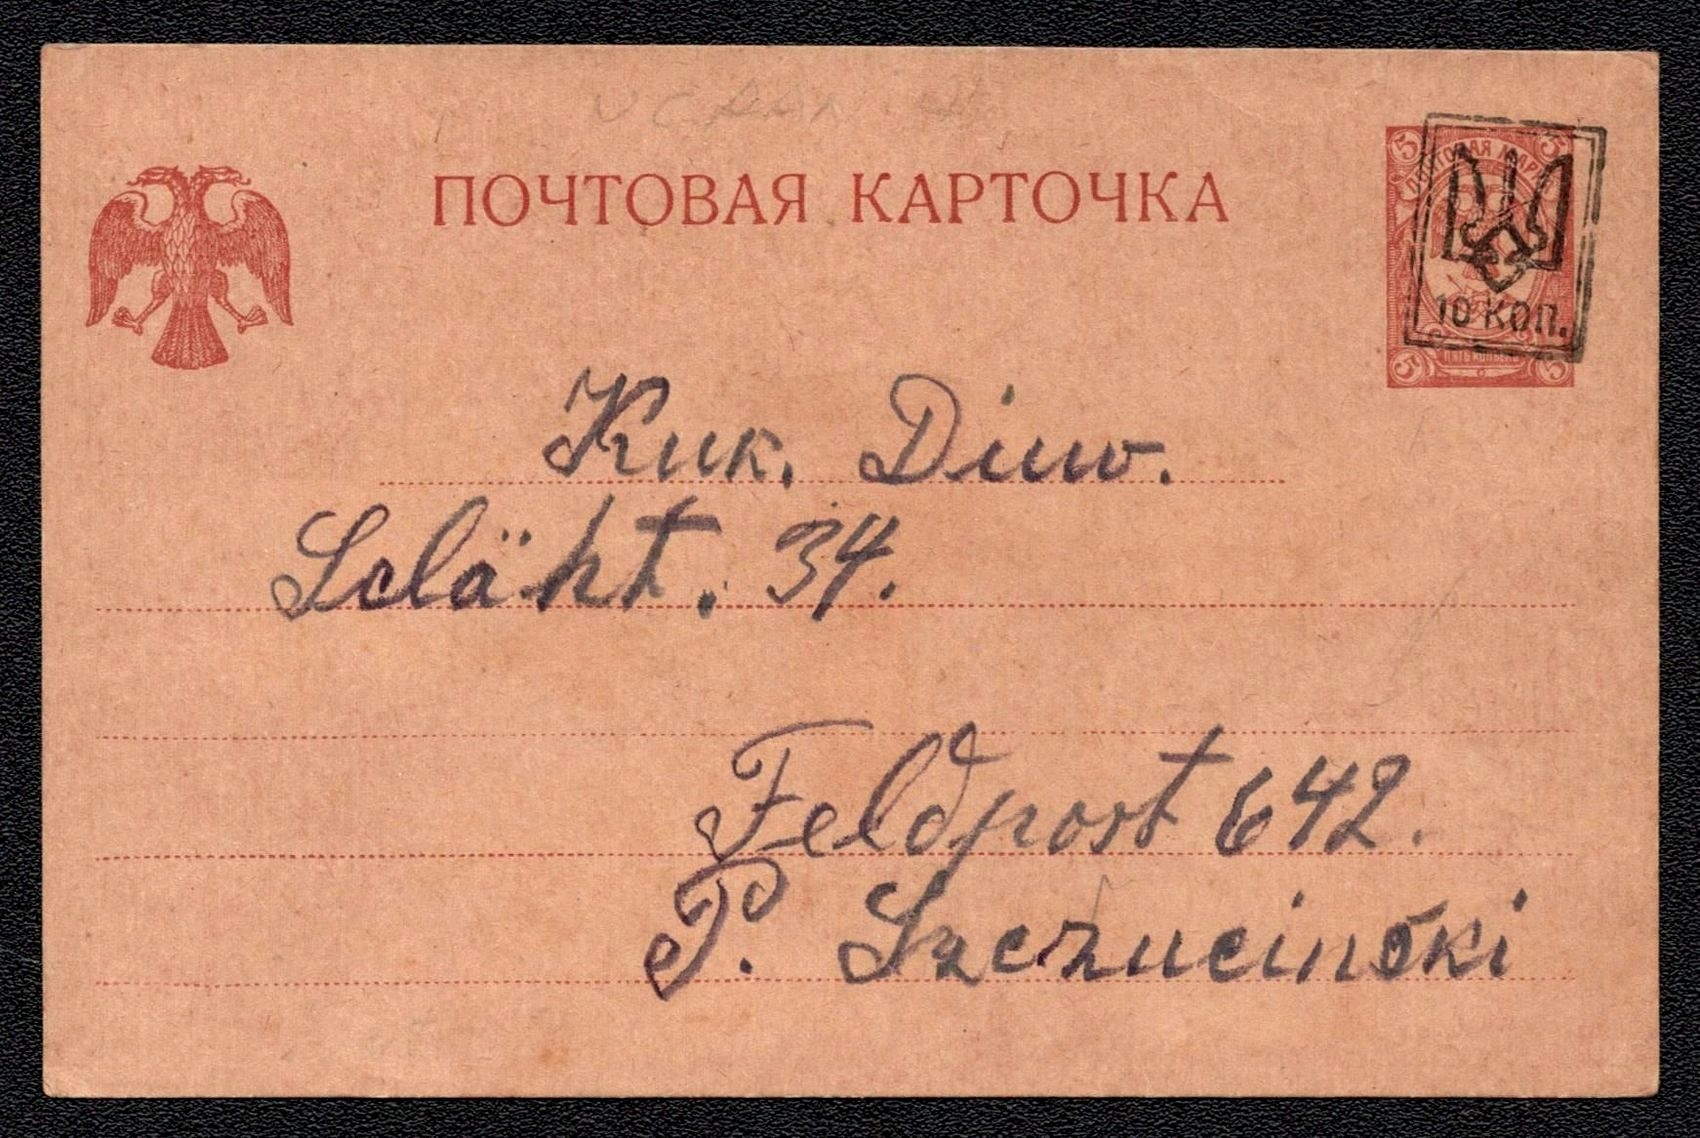 ПОЧТОВАЯ КАРТОЧКА
5 ПОЧТОВАЯ МАРКА 5
10 коп.
5 ПЯТЬ КОПѢЕКЪ 5
Kuk. Diuv.
Scläht. 34.
Feldpost 642.
P. Szczuciński